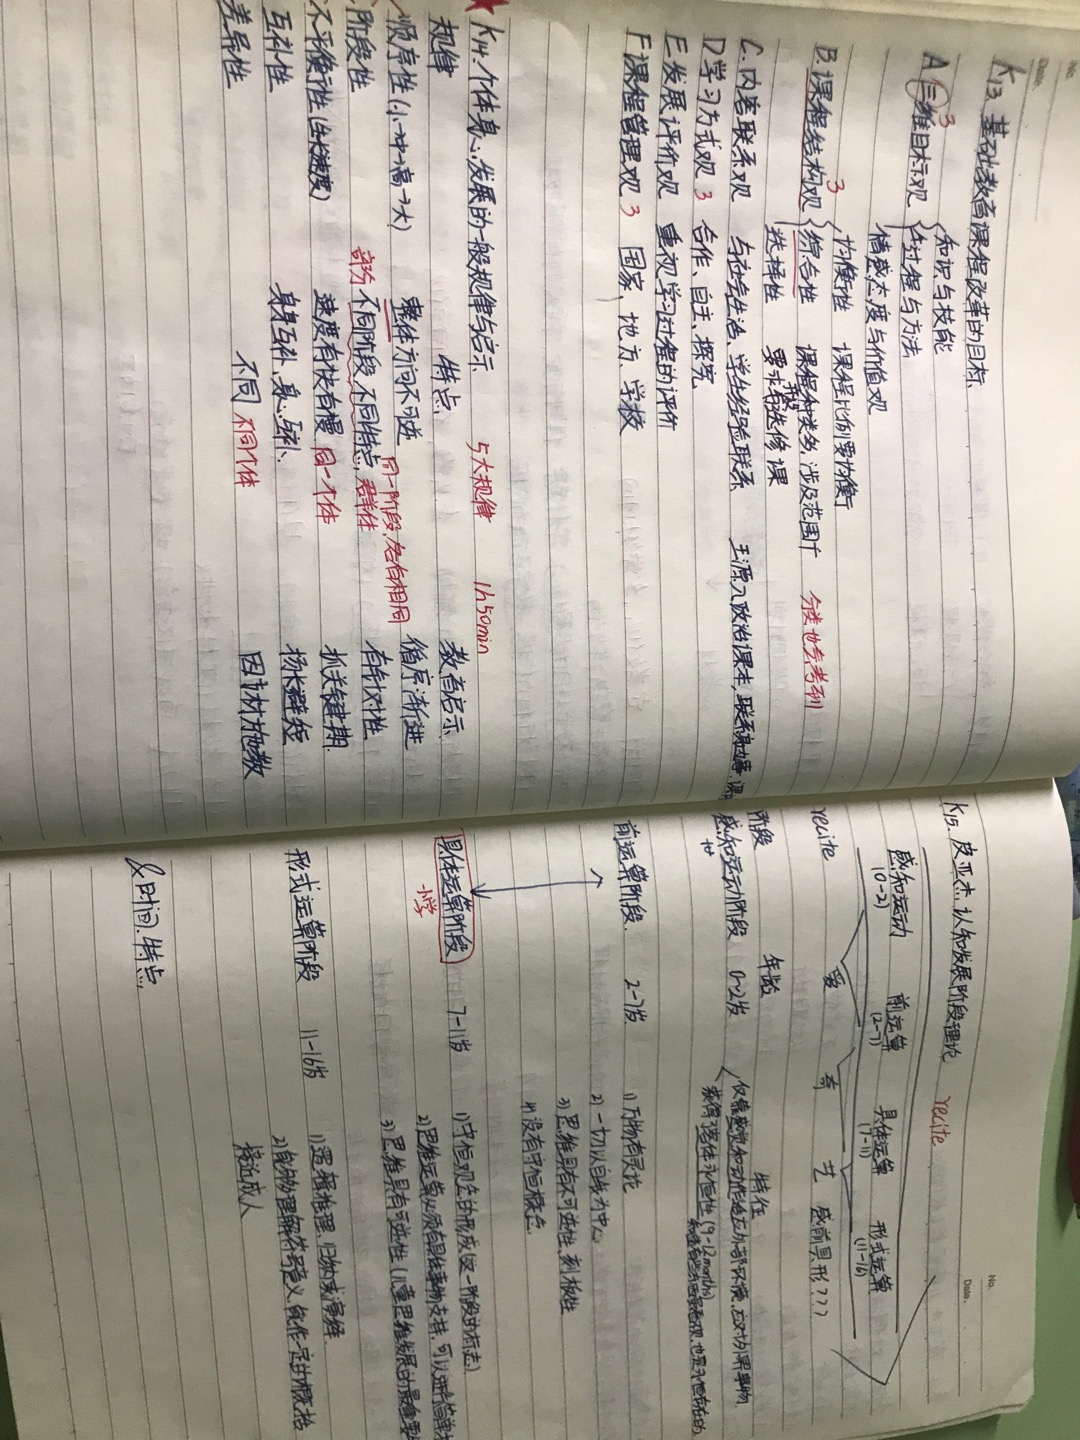 No.
Date.
K13. 基础教育课程改革的目标
A 三维目标观 3 知识与技能
过程与方法
情感态度与价值观
B. 课程结构观 3 均衡性 课程比例要均衡
综合性 课程种类多,涉及范围广 分类也会考到
选择性 要求开设选修课
C. 内容联系观 与社会生活、学生经验联系 王源入政治课本,
D 学习方式观 3 合作、自主、探究
E. 发展评价观 重视学习过程的评价
F 课程管理观 3 国家、地方、学校
K14. 个体身心发展的一般规律与启示 5大规律 1h50min
规律 特点 教育启示
顺序性(小→中→高→大) 整体方向不可逆 循序渐进
同一阶段,各有相同
阶段性 部分 不同阶段,不同特点,群体 有针对性
不平衡性(生长速度) 速度有快有慢 同一个体 抓关键期
互补性 身身互补,身心互补. 扬长避短
差异性 不同 不同个体 因材施教
No.
Date.
K15. 皮亚杰,认知发展阶段理论 recite
感知运动 前运算 具体运算 形式运算
(0-2) (2-7) (7-11) (11-16)
recite 爱 奇 艺 感前具形???
阶段 年龄 特征
感知运动阶段 0-2岁 仅靠感觉和动作适应外部环境,应对外界事物
获得了客体永恒性(9-12months)
前运算阶段. 2-7岁 1)万物有灵论
2)一切以自我为中心
3)思维具有不可逆性,刻板性
4)没有守恒概念.
具体运算阶段 7-11岁 1)守恒观念的形成(这一阶段的标志)
小学 2)思维运算必须有具体事物支持,可以进行简单
3)思维具有可逆性(儿童思维发展的最重要
形式运算阶段 11-16岁 1)逻辑推理,归纳或演绎
2)能够理解符号意义,能作一定的概括
接近成人
&时间.特点